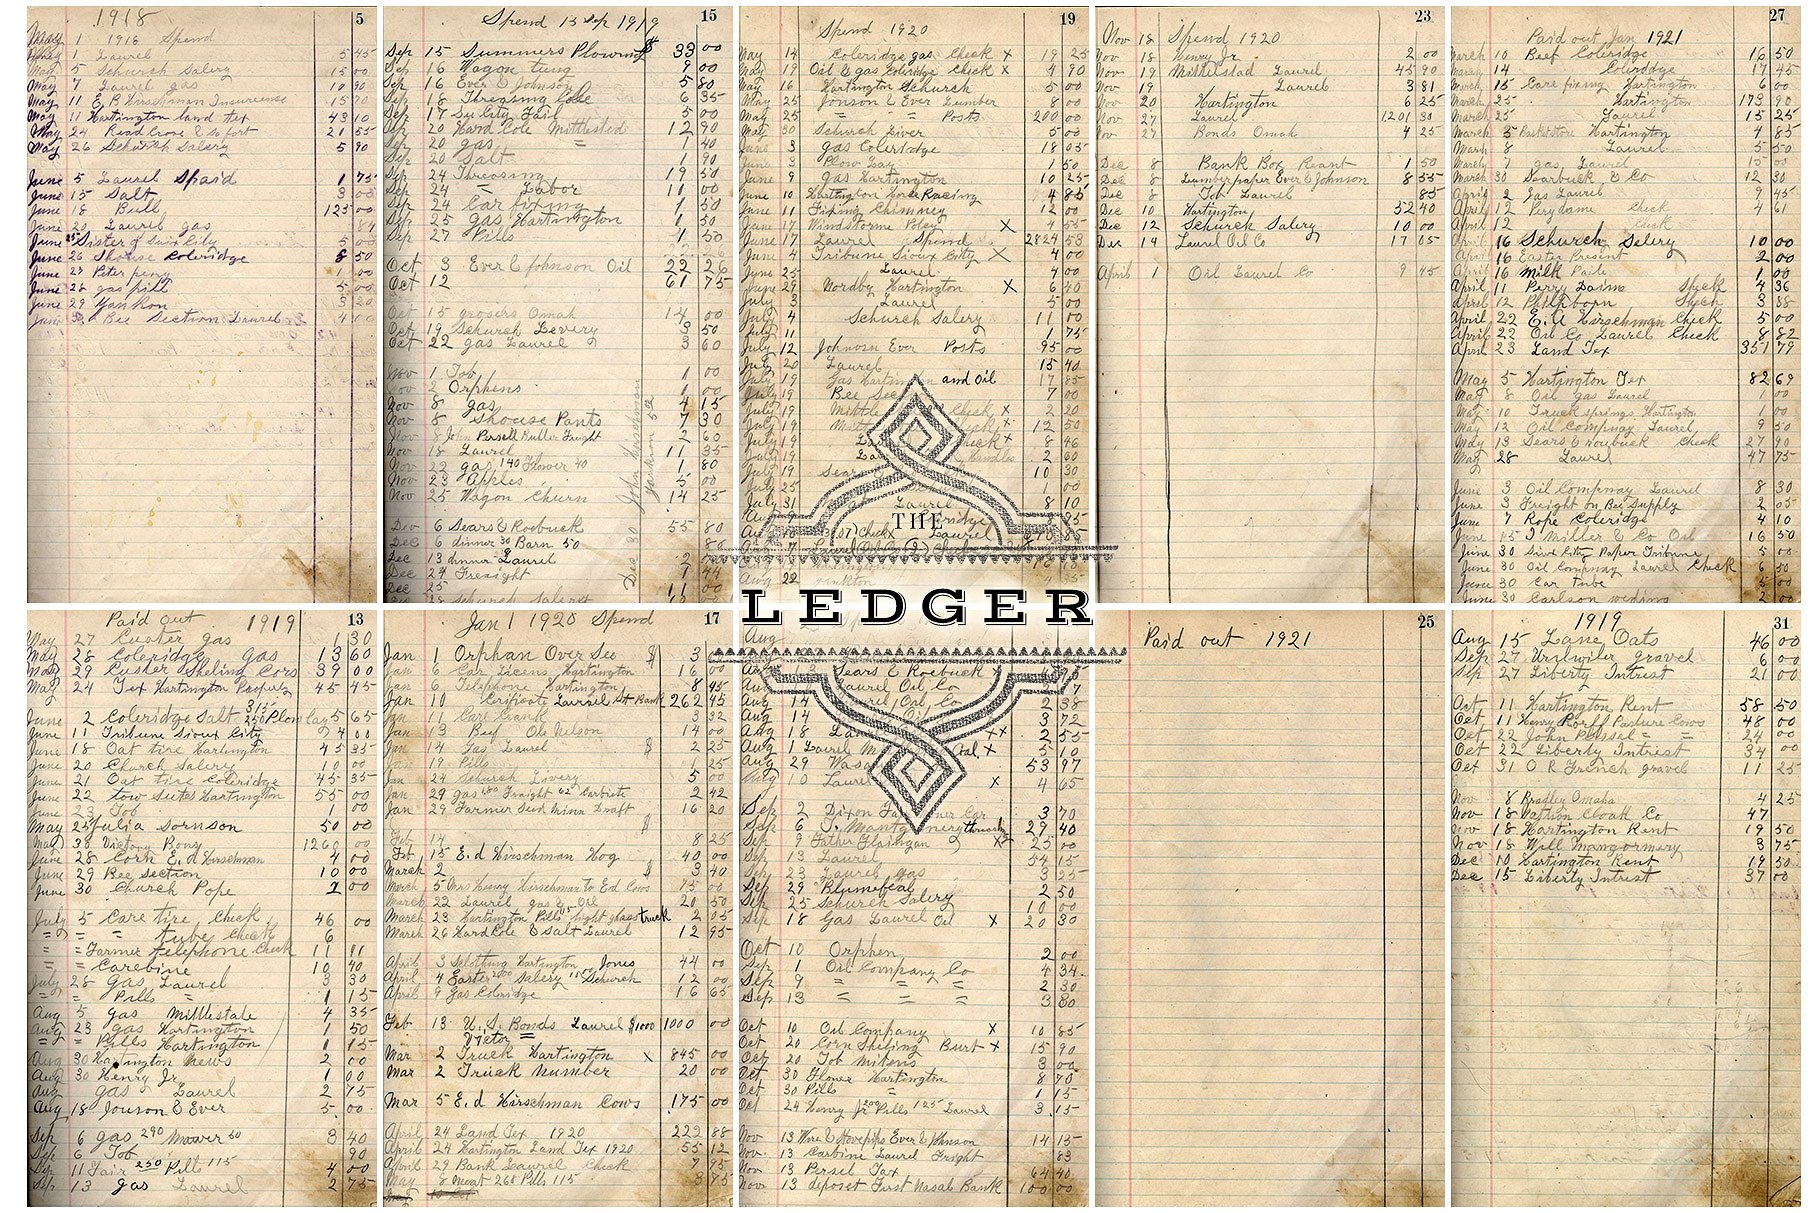 1918 5
May 1 1918 Spend
May 1 Laurel 5 45
May 5 Schursh Salery 15 00
May 7 Laurel gas 10 90
May 11 E B Hirschman Insurense 15 70
May 11 Hartington land tex 43 10
May 24 Read Crose & so fort 21 55
May 26 Schursh Salery 5 90
June 5 Laurel Spaid 1 75
June 15 Salt 3 00
June 18 Bull 125 00
June 20 Laurel gas
June Sister of Suix City 5 00
June 26 Shouse Coleridge 8 50
June Peter peny 1 00
June 28 gas pills 5 00
June 29 Yankon 3 20
June Bee Section Laurel 4 00
Spend 13 Sep 1919 15
Sep 15 Summers Plowing $ 33 00
Sep 16 Wagon tung 9 00
Sep 16 Ever & Johnson 5 80
Sep 18 Threasing Cole 6 35
Sep 17 Su City Fair 5 00
Sep 20 Hard Cole Mittlested 12 90
Sep 20 gas = 1 40
Sep 20 Salt 1 90
Sep 24 Threasing 19 50
Sep 24 = Labor 11 00
Sep 24 Car fixing 1 50
Sep 25 gas Hartington 1 50
Sep 27 Pills 1 50
Oct 3 Ever & Johnson Oil 22 26
Oct 12 61 75
Oct 15 grosers Omah 14 00
Oct 19 Schursh Levery 3 50
Oct 22 gas Laurel 3 60
Nov 1 Tob 1 00
Nov 2 Orphens 1 00
Nov 8 gas 4 15
Nov 8 Shouse Pants 7 30
Nov 8 John Persell Kuller Freight 2 60
Nov 18 Laurel 11 35
Nov 22 gas 140 Flower 40 1 80
Nov 23 Apples 5 00
Nov 25 Wagon Churn 14 25
Dec 6 Sears & Roebuck 55 80
Dec 6 dinner 30 Barn 50 80
Dec 13 dinner Laurel 2
Dec 24 Freaight 1 44
Dec 25 11 00
28 Schursh Salery
Dec 30 John Hirschman
Spend 1920 19
May 14 Coleridge gas Check x 19 25
May 19 Oil & gas Coleridge Check x 4 90
May 16 Hartington Schursh 5 00
May 25 Jonson & Ever Lumber 8 00
May 25 = = Posts 200 00
May 30 Schursh Liver 5 00
June 3 gas Coleridge 18 05
June 3 Plow Lay 1 50
June 9 gas Hartington 10 25
June 10 Hartington horse Racing 4 85
June 11 Fixing Chimney 12 00
June 17 Windstorme Poley x 4 55
June 17 Laurel Spend 2824 53
June 4 Tribune Sioux City x 4 00
June 25 Laurel 4 00
June 29 Nordby Hartington x 6 40
July 3 Laurel 5 00
July 4 Schursh Salery 11 00
July 11 1 75
July 12 Johnosn Ever Posts 95 00
July 20 Laurel 15 40
July 19 Gas Hartington and Oil 17 85
July 19 Bee Sec 7 00
July 19 Mittle Check x 2 20
July 19 Check x 12 50
July 19 Check x 8 46
July 19 Handles 2 60
July 19 Sear 10 30
July 25 1 00
July 31 Laurel 8 10
THE
LEDGER
23
Nov 18 Spend 1920
Nov 18 Henry Jr 2 00
Nov 19 Mittelstad Laurel 45 90
Nov 19 Laurel 3 81
Nov 20 Hartington 6 25
Nov 27 Laurel 1201 30
Nov 27 Bonds Omah 4 25
Dec 8 Bank Box Reant 1 50
Dec 8 Lumber paper Ever & Johnson 8 55
Dec 8 Tob Laurel 85
Dec 10 Hartington 52 40
Dec 12 Schursh Salery 10 00
Dec 14 Laurel Oil Co 17 05
April 1 Oil Laurel Co 9 45
27
Paid out Jan 1921
March 10 Beef Coleridge 16 50
March 14 Coleridge 17 45
March 15 Care fixing Hartington 6 00
March 25 Hartington 173 90
March 25 Laurel 15 25
March 5 Basketstore Hartington 4 85
March 8 Laurel 5 50
March 7 gas Laurel 15 00
March 30 Searbuck & Co 12 30
April 2 Gas Laurel 9 45
April 12 Perydame Check 4 61
April 12 Check
April 16 Schursh Selery 10 00
April 16 Easter Present 2 00
April 16 Milk Paile 1 00
April 11 Perry Daime Sheck 4 36
April 12 Philipborn Sheck 3 38
April 22 E. A Hirschman Check 5 00
April 22 Oil Co Laurel Check 8 82
April 23 Land Tex 351 79
May 5 Hartington Tex 82 69
May 8 Oil gas Laurel 1 00
May 10 Truck springs Hartington 1 00
May 12 Oil Compway Laurel 9 50
May 13 Sears & roybuck Check 27 90
May 28 Laurel 47 75
June 3 Oil Compway Laurel 8 30
June 3 Freight on Bee Supply 2 05
June 7 Rope Coleridge 4 10
June 15 T Miller & Co Oil 16 50
June 30 Siux City Paper Tribune 5 00
June 30 Oil Compway Laurel Check 6 50
June 30 Car tube 5 00
June 30 Carlson weding 2 00
Paid out 1919 13
May 27 Custer gas 1 30
May 28 Coleridge gas 13 60
May 29 Custer Sheling Corn 39 00
May 24 Tex Hartington Property 45 45
June 2 Coleridge Salt 315 250 Plow lay 5 65
June 11 Tribune Sioux City 4 00
June 18 Oat tire Hartington 45 35
June 20 Church Salery 10 00
June 21 Oat tire Coleridge 45 35
June 22 tow Sutes Hartington 55 00
June 23 Tob 1 00
May 25 Julia Sornson 50 00
May 30 Victory Bony 1260 00
June 28 Corn E. d Hirschman 4 00
June 29 Bee Section 10 00
June 30 Church Pope 2 00
July 5 Care tire, Check 46 00
= = " tube Check 6
= = Farmer telephone Check 11 11
= = Carebine 10 40
July 28 Gas Laurel 3 30
= = Pills = 1 15
Aug 5 gas Mittlestate 4 35
Aug 23 gas Hartington 1 50
= = Pills Hartington 1 15
Aug 30 Hartington News 2 00
Aug 30 Henry Jr 1 00
Aug gas Laurel 2 75
Aug 18 Jonson & Ever 5 00
Sep 6 gas 290 Mower 50 3 40
Sep 6 Tob 90
Sep 11 Fair 250 Pills 115 4 00
Sep 13 gas Laurel 2 75
Jan 1 1920 Spend 17
Jan 1 Orphan Over Sea $ 3
Jan 6 Car Licens Hartington 16 00
Jan 6 Telephone Hartington 8 45
Jan 10 Cerificate Laurel St Bank 262 45
Jan 11 Care Crank 3 32
Jan 13 Beef Ole Nelson 14 00
Jan 14 Gas Laurel $ 2 25
Jan 19 Pills 1 25
Jan 24 Schursh Livery 5 00
Jan 29 gas Fraight Carbuete 2 42
Jan 29 Farmer Seed Minn Draft 16 20
Feb 14 $ 8 25
Feb 15 E. d Hirschman Hog 40 00
March 2 $ 3 40
March 5 Mrs Henry Hirschman to Ed Cows 15 00
March 22 Laurel gas & Oil 20 50
March 23 Hartington Pills light glass truck 2 05
March 26 Hard Cole & Salt Laurel 12 95
April 3 Slothing Hartington Jones 44 00
April 4 Easter 200 Salery 1000 Schursh 12 00
April 9 Gas Coleridge 16 65
Feb 13 U. S. Bonds Laurel $1000 1000 00
Victor =
Mar 2 Truck Hartington x 845 00
Mar 2 Truck Number 20 00
Mar 5 E. d Hirschman Cows 175 00
April 24 Land Tex 1920 222 88
April 24 Hartington Land Tex 1920 55 12
April 29 Bank Laurel Check 7 75
May 8 Meat 268 Pills 115 3 75
Aug
Sears & Roebuck
Laurel Oil Co
Aug 14 Laurel Oil Co 2 38
Aug 14 3 72
Aug 18 La xx 2 55
Aug 1 Laurel Coal x 5 10
Aug 29 53 97
Aug 10 Laurel x 4 65
Sep 2 Dixon Fa ner Car 3 70
Sep 6 J. Montgomery 29 40
Sep 9 Father Flaingan 25 00
Sep 13 Laurel 54 15
Sep 23 Laurel gas 3 25
Sep 29 Blumebeal 2 50
Sep 25 Schursh Salery 10 00
Sep 18 Gas Laurel Oil x 20 30
Oct 10 Orphen 2 00
Sep 1 Oil Company Co 4 34
Sep 9 = = = 2 30
Sep 13 = = = 3 80
Oct 10 Oil Company x 10 85
Oct 20 Corn Sheling Burt x 15 90
Oct 20 Tob Mitens 3 00
Oct 30 Glover Hartington 8 70
Oct 30 Pills = 1 15
Oct 24 Henry Jr 200 Pills 125 Laurel 3 15
Nov 13 Wire & Stovepips Ever & Johnson 14 15
Nov 13 Carbine Laurel Fraght 83
Nov 13 Persel Tax 64 40
Nov 13 deposet First Nasal Bank 100 00
25
Paid out 1921
1919 31
Aug 15 Lane Oats 46 00
Sep 27 Urslwiler gravel 6 00
Sep 27 Liberty Intrest 21 00
Oct 11 Hartington Rent 58 50
Oct 11 Henry Rorff Pasture Cows 48 00
Oct 22 John Pessel = = 24 00
Oct 22 Liberty Intrest 34 00
Oct 31 O R French gravel 11 25
Nov 8 Bradley Omaha 4 25
Nov 18 Nastion Cloak Co 47
Nov 18 Hartington Rent 19 50
Nov 18 Will Mangormery 3 75
Dec 10 Hartington Rent 19 50
Dec 15 Liberty Intrest 37 00